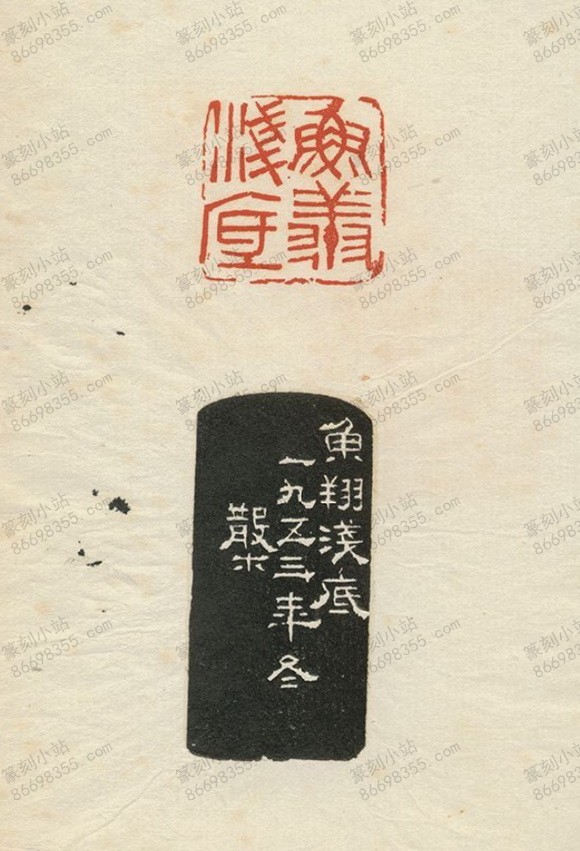 魚翔
淺底
魚翔淺底
一九五三年冬
散木
篆刻小站
86698355.com